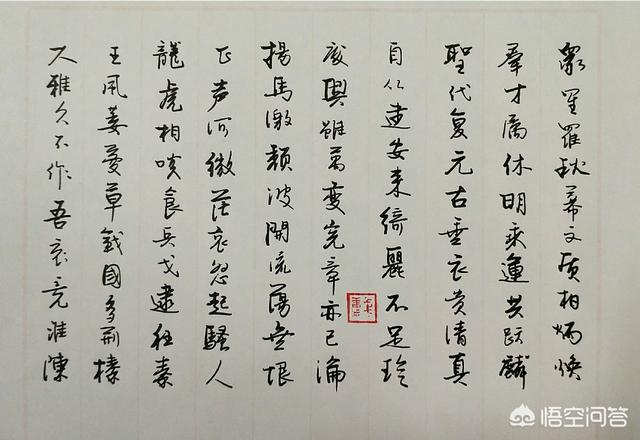 大雅久不作吾衰竟誰陳
王風萎蔓草戰國多荆榛
龍虎相啖食兵戈逮狂秦
正声何微茫哀怨起騷人
揚馬激頹波開流蕩無垠
廢興雖萬變憲章亦已淪
自从建安来綺麗不足珍
聖代复元古垂衣貴清真
羣才属休明乘運共跃鱗
眾星羅秋文质相炳焕
悟空问答